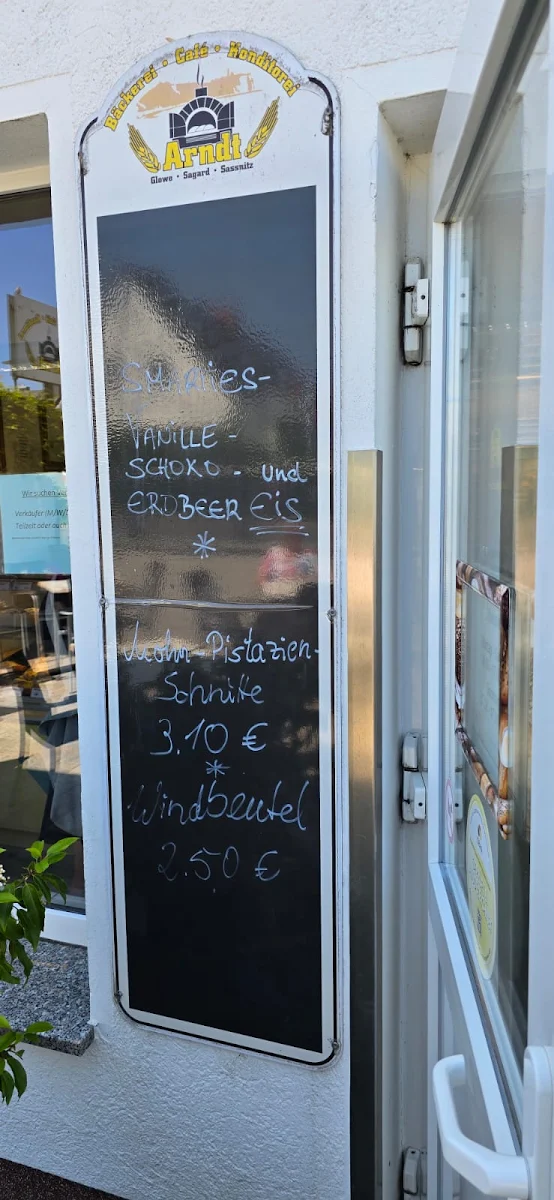 Bäckerei · Café · Konditorei
Arndt
Glowe · Sagard · Sassnitz
SMARTIES-
VANILLE-
SCHOKO- und
ERDBEER EIS
Mohn-Pistazien-
Schnitte
3.10 €
Windbeutel
2.50 €
Wir suchen
Verkäufer (M/W/
Teilzeit oder auch